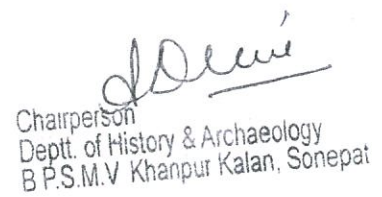 Chairperson
Deptt. of History & Archaeology
B P.S.M.V Khanpur Kalan, Sonepat